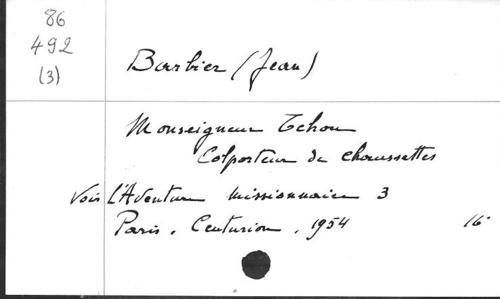 86
492
(3)
Barbier (Jean)
Monseigneur Tchou
Colporteur de chaussettes
Voir L'Aventure missionnaire 3
Paris. Centurion. 1954 16°